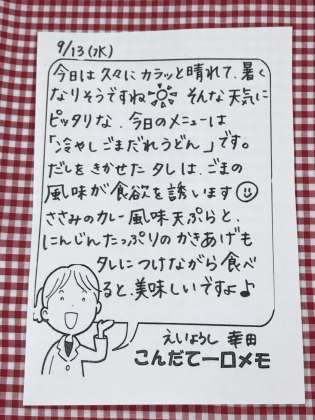 9/13(水)
今日は久々にカラッと晴れて、暑く
なりそうですね☀ そんな天気に
ピッタリな、今日のメニューは
「冷やしごまだれうどん」です。
だしをきかせたタレは、ごまの
風味が食欲を誘います☺
ささみのカレー風味天ぷらと、
にんじんたっぷりのかきあげも
タレにつけながら食べ
ると、美味しいですよ♪
えいようし 幸田
こんだて一口メモ